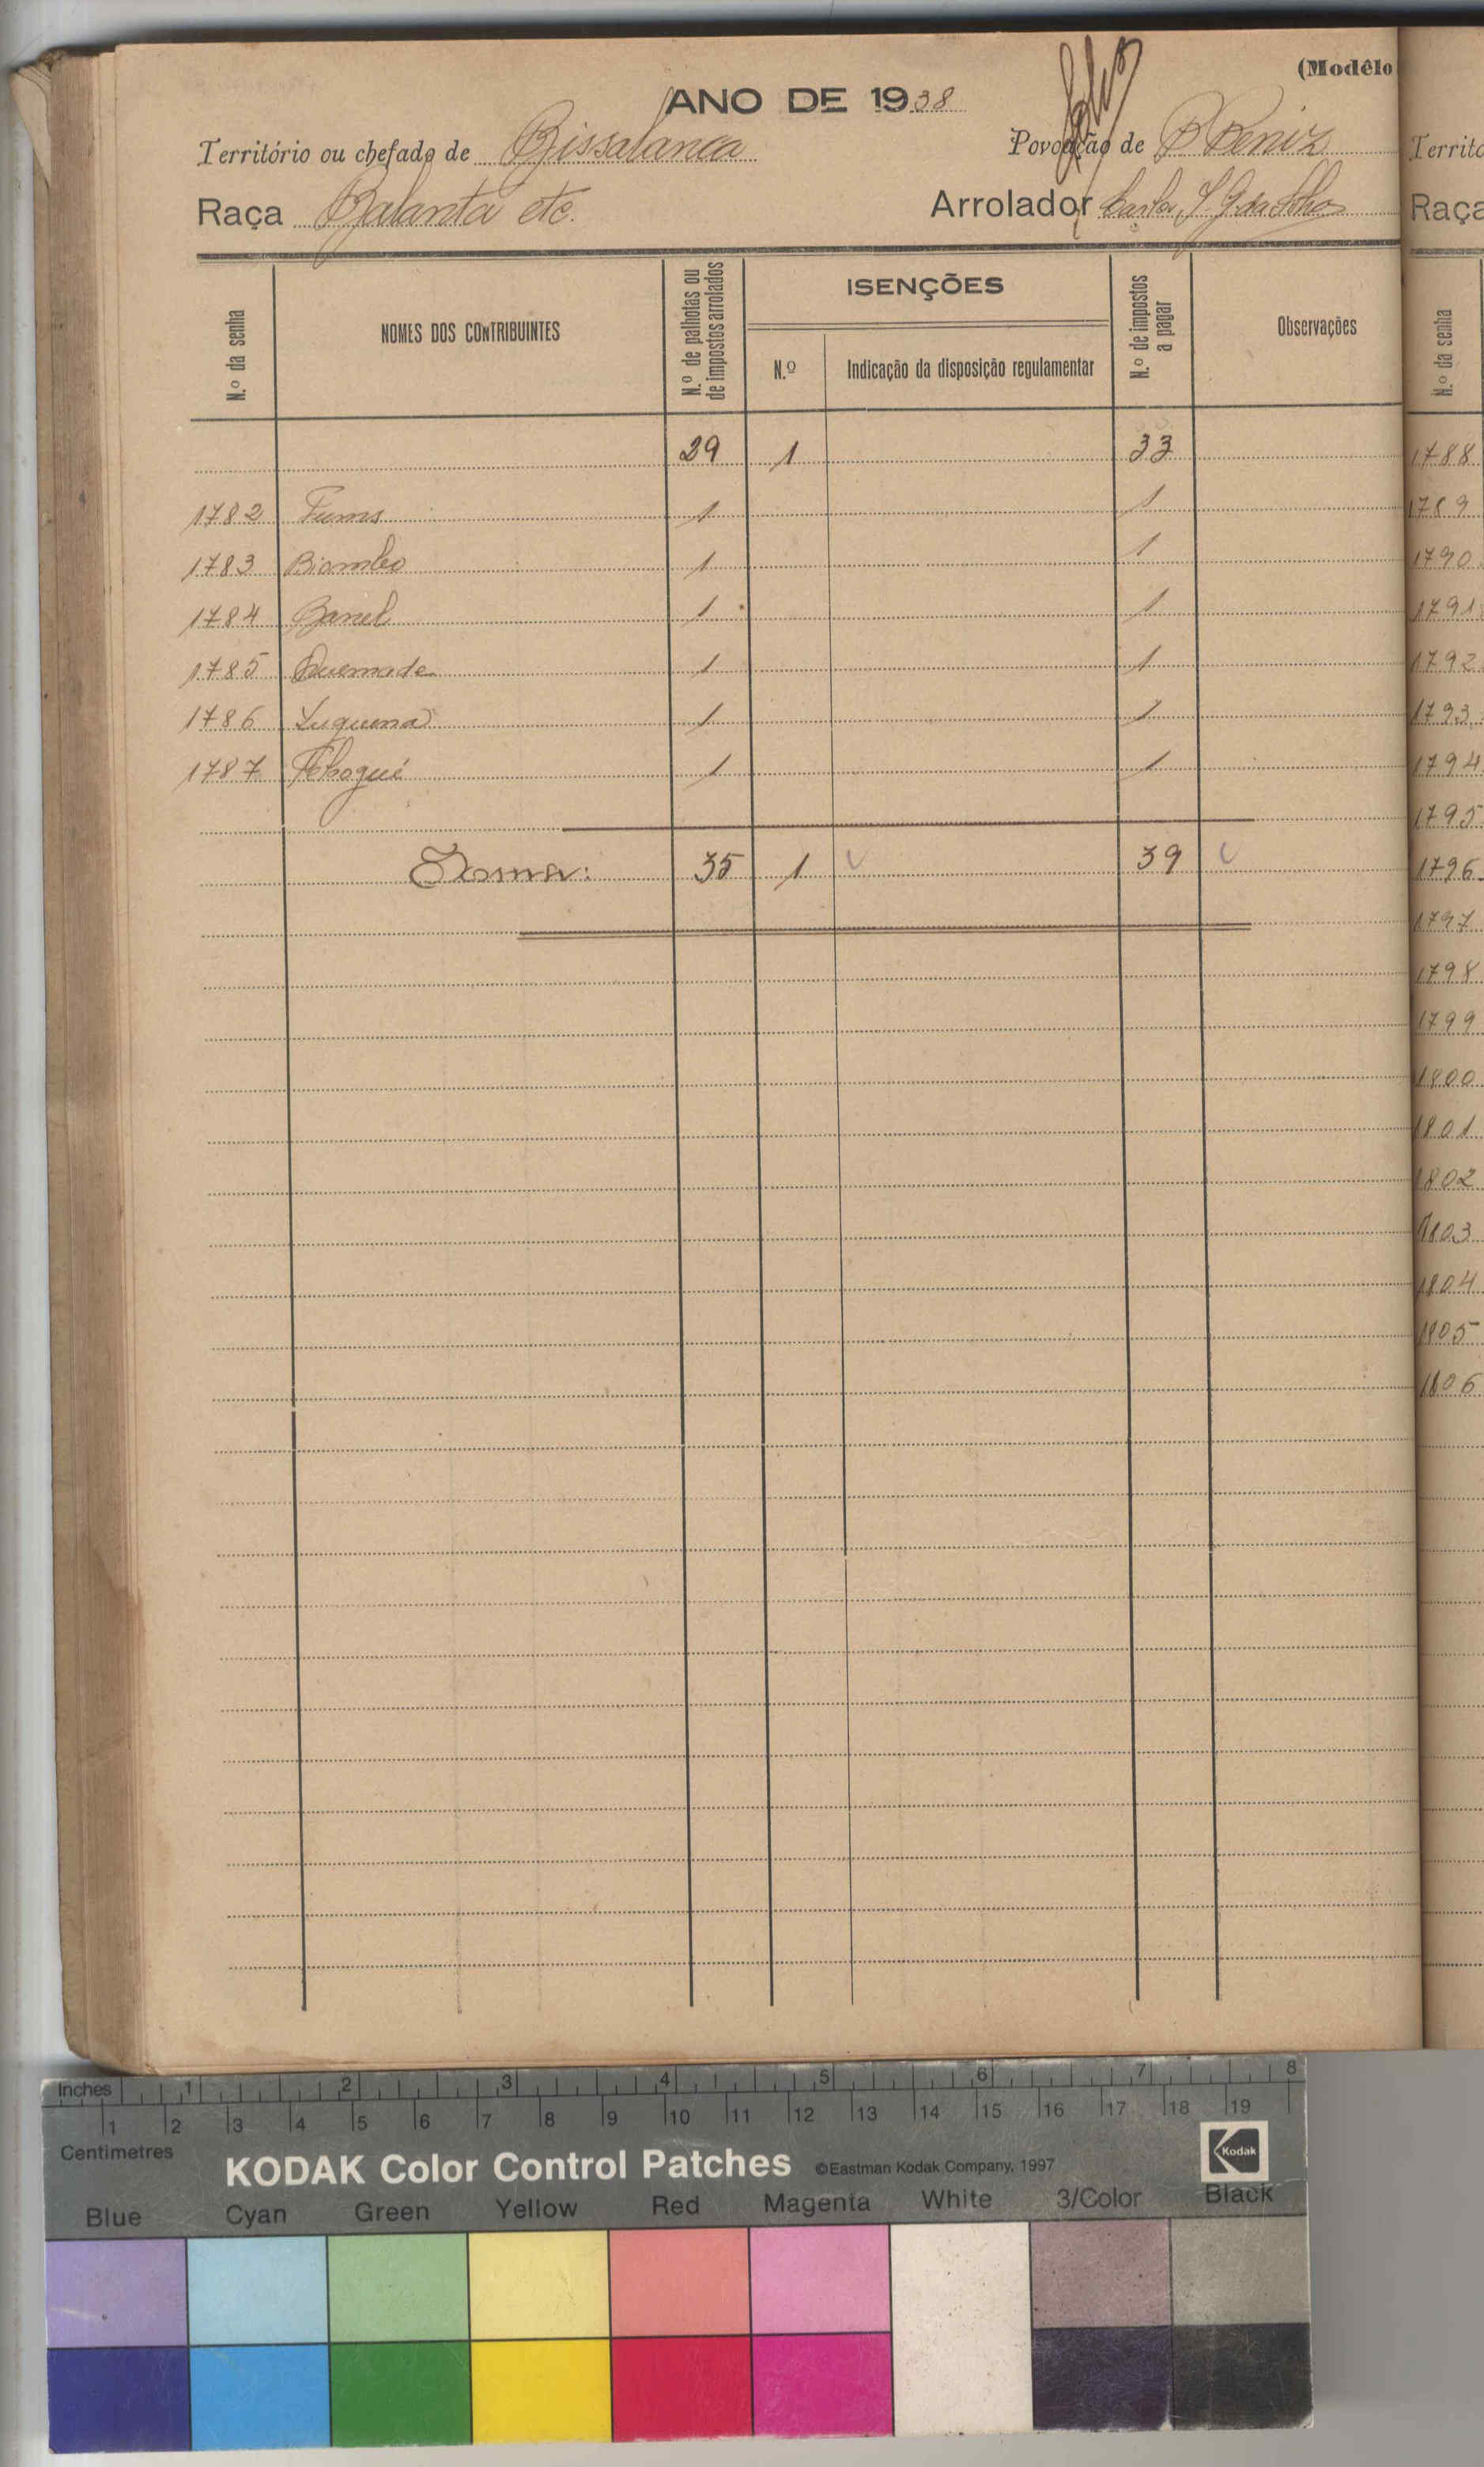 (Modêlo
ANO DE 1938
Território ou chefado de Bissalanca Povoação de
Raça Balanta etc. Arrolador Carlos
N.º da senha NOMES DOS CONTRIBUINTES N.º de palhotas ou de impostos arrolados ISENÇÕES N.º Indicação da disposição regulamentar N.º de impostos a pagar Observações
29 1 33
1782 1 1
1783 Biombo 1 1
1784 Banel 1 1
1785 Quemade 1 1
1786 Luquena 1 1
1787 1 1
Soma: 35 1 39
Territó
Raça
N.º da senha
1788
1789
1790
1791
1792
1793
1794
1795
1796
1797
1798
1799
1800
1801
1802
1803
1804
1805
1806
Inches 1 2 3 4 5 6 7 8
1 2 3 4 5 6 7 8 9 10 11 12 13 14 15 16 17 18 19
Centimetres
KODAK Color Control Patches ©Eastman Kodak Company, 1997 Kodak
Blue Cyan Green Yellow Red Magenta White 3/Color Black